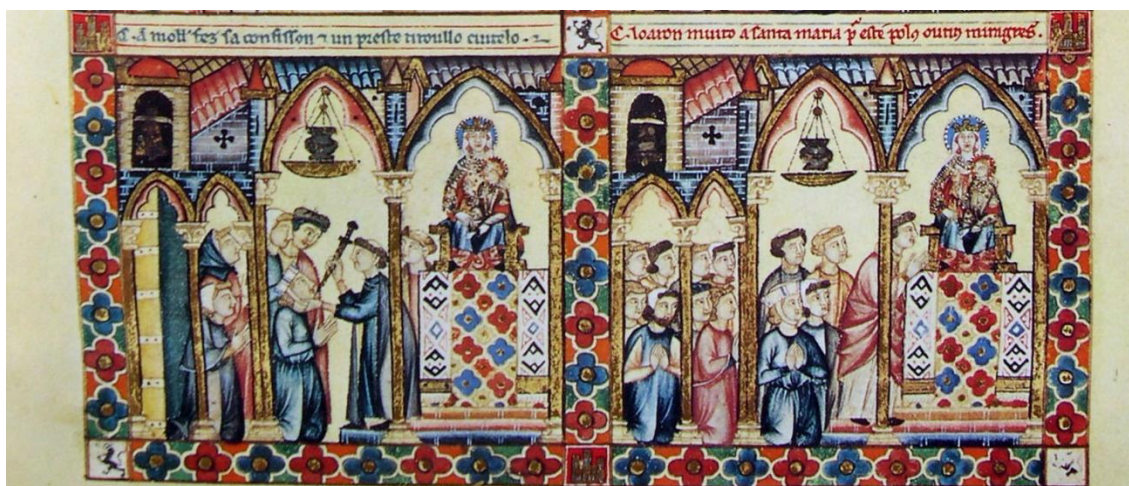 C. A moll' fez sa confisson ⁊ un preste tiroullo cuitelo.
C. loaron muito a santa maria p̃ este polꝯ outrꝯ miragres.